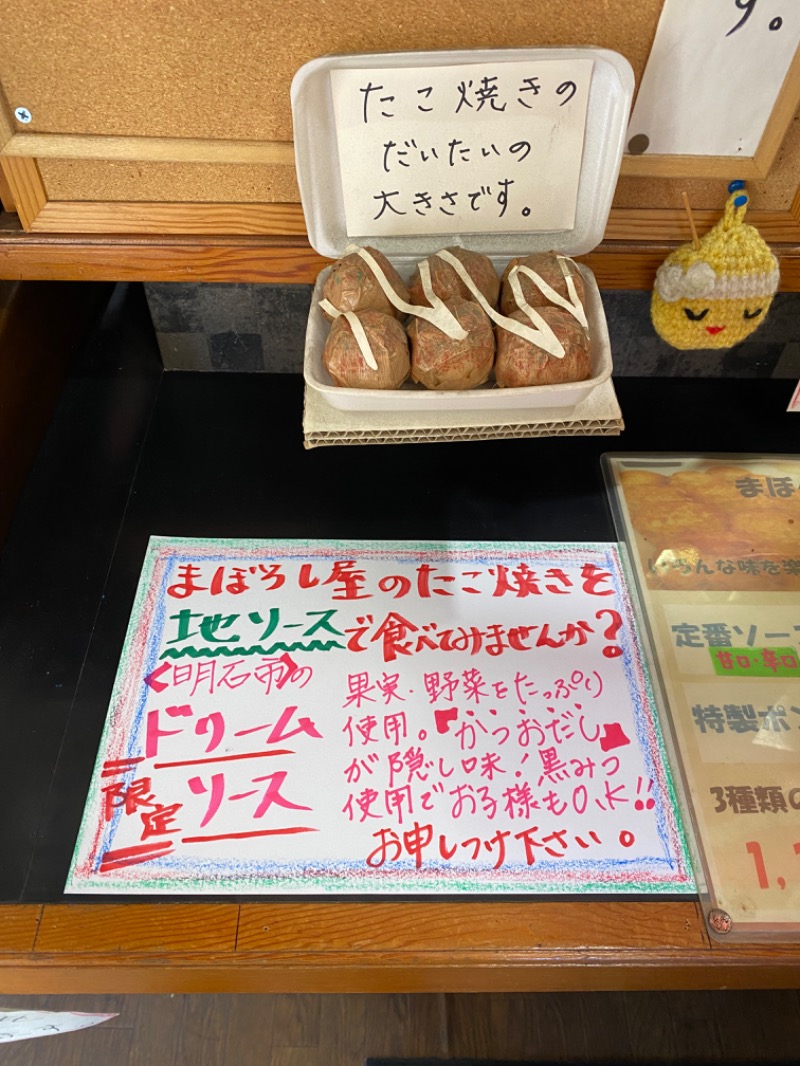 す。
たこ焼きの
だいたいの
大きさです。
まぼろし屋のたこ焼きを
地ソースで食べてみませんか?
〈明石市〉の
ドリーム
ソース
限定
果実・野菜をたっぷり
使用。『かつおだし』
が隠し味!黒みつ
使用でお子様もO.K!!
お申しつけ下さい。
まぼ
いろんな味を楽
定番ソース
甘口・辛口
特製ポン
3種類の
1,